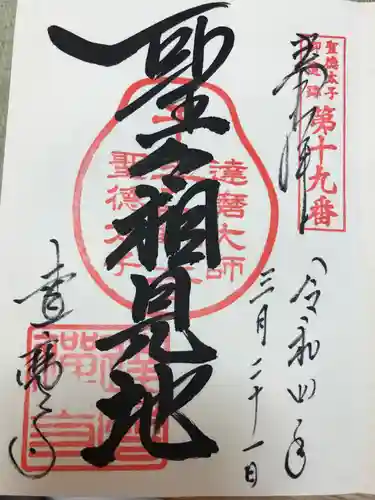 聖徳太子
御遺跡
第十九番
奉拝
令和四年
三月二十一日
聖々相見地
達磨大師
聖徳太子
達磨寺